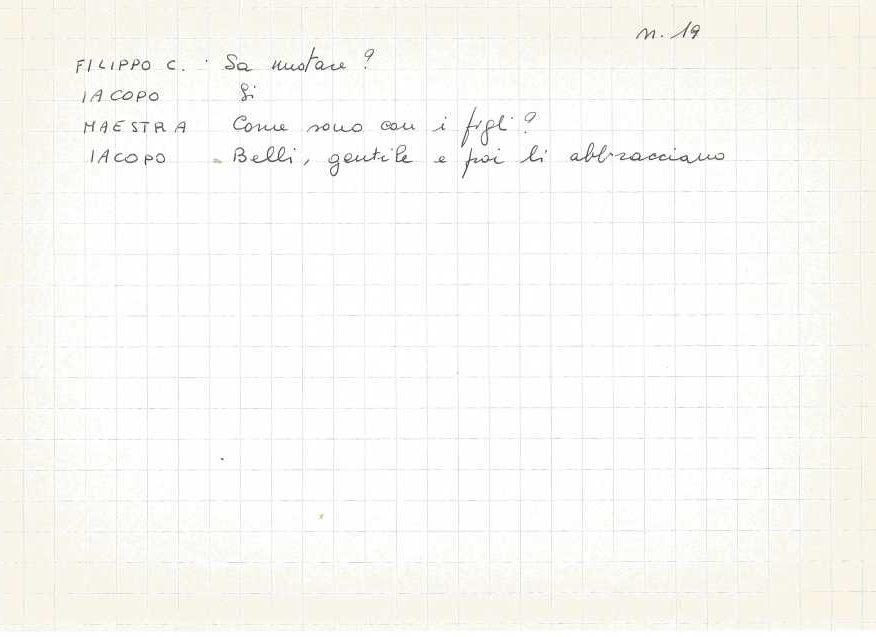 n. 19
FILIPPO C. Sa nuotare?
IACOPO Si
MAESTRA Come sono con i figli?
IACOPO Belli, gentile e poi li abbracciano